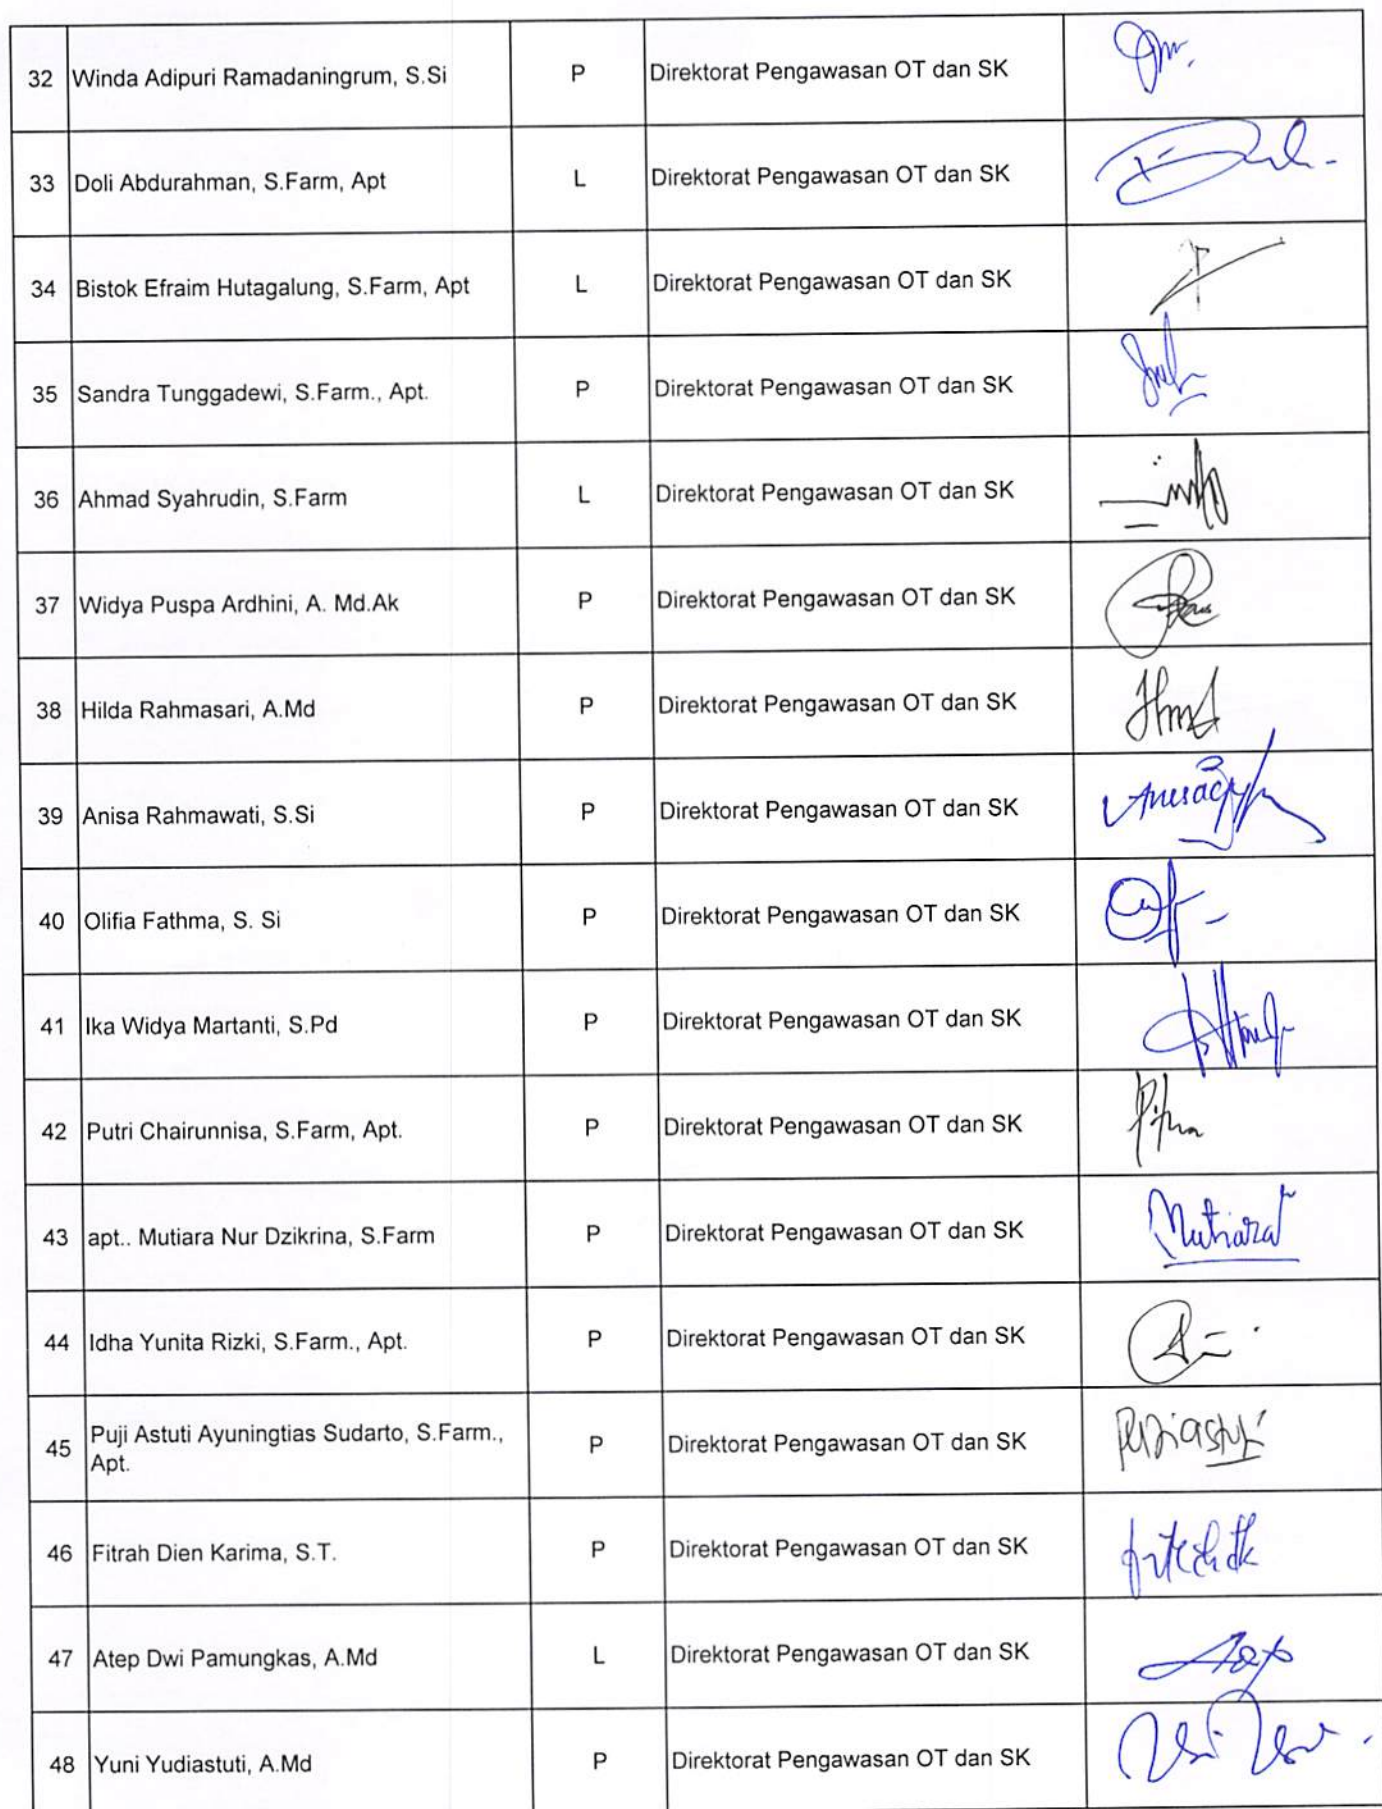 32 Winda Adipuri Ramadaningrum, S.Si P Direktorat Pengawasan OT dan SK
33 Doli Abdurahman, S.Farm, Apt L Direktorat Pengawasan OT dan SK
34 Bistok Efraim Hutagalung, S.Farm, Apt L Direktorat Pengawasan OT dan SK
35 Sandra Tunggadewi, S.Farm., Apt. P Direktorat Pengawasan OT dan SK
36 Ahmad Syahrudin, S.Farm L Direktorat Pengawasan OT dan SK
37 Widya Puspa Ardhini, A. Md.Ak P Direktorat Pengawasan OT dan SK
38 Hilda Rahmasari, A.Md P Direktorat Pengawasan OT dan SK
39 Anisa Rahmawati, S.Si P Direktorat Pengawasan OT dan SK
40 Olifia Fathma, S. Si P Direktorat Pengawasan OT dan SK
41 Ika Widya Martanti, S.Pd P Direktorat Pengawasan OT dan SK
42 Putri Chairunnisa, S.Farm, Apt. P Direktorat Pengawasan OT dan SK
43 apt.. Mutiara Nur Dzikrina, S.Farm P Direktorat Pengawasan OT dan SK Mutiara
44 Idha Yunita Rizki, S.Farm., Apt. P Direktorat Pengawasan OT dan SK
45 Puji Astuti Ayuningtias Sudarto, S.Farm., P Direktorat Pengawasan OT dan SK
Apt.
46 Fitrah Dien Karima, S.T. P Direktorat Pengawasan OT dan SK
47 Atep Dwi Pamungkas, A.Md L Direktorat Pengawasan OT dan SK
48 Yuni Yudiastuti, A.Md P Direktorat Pengawasan OT dan SK